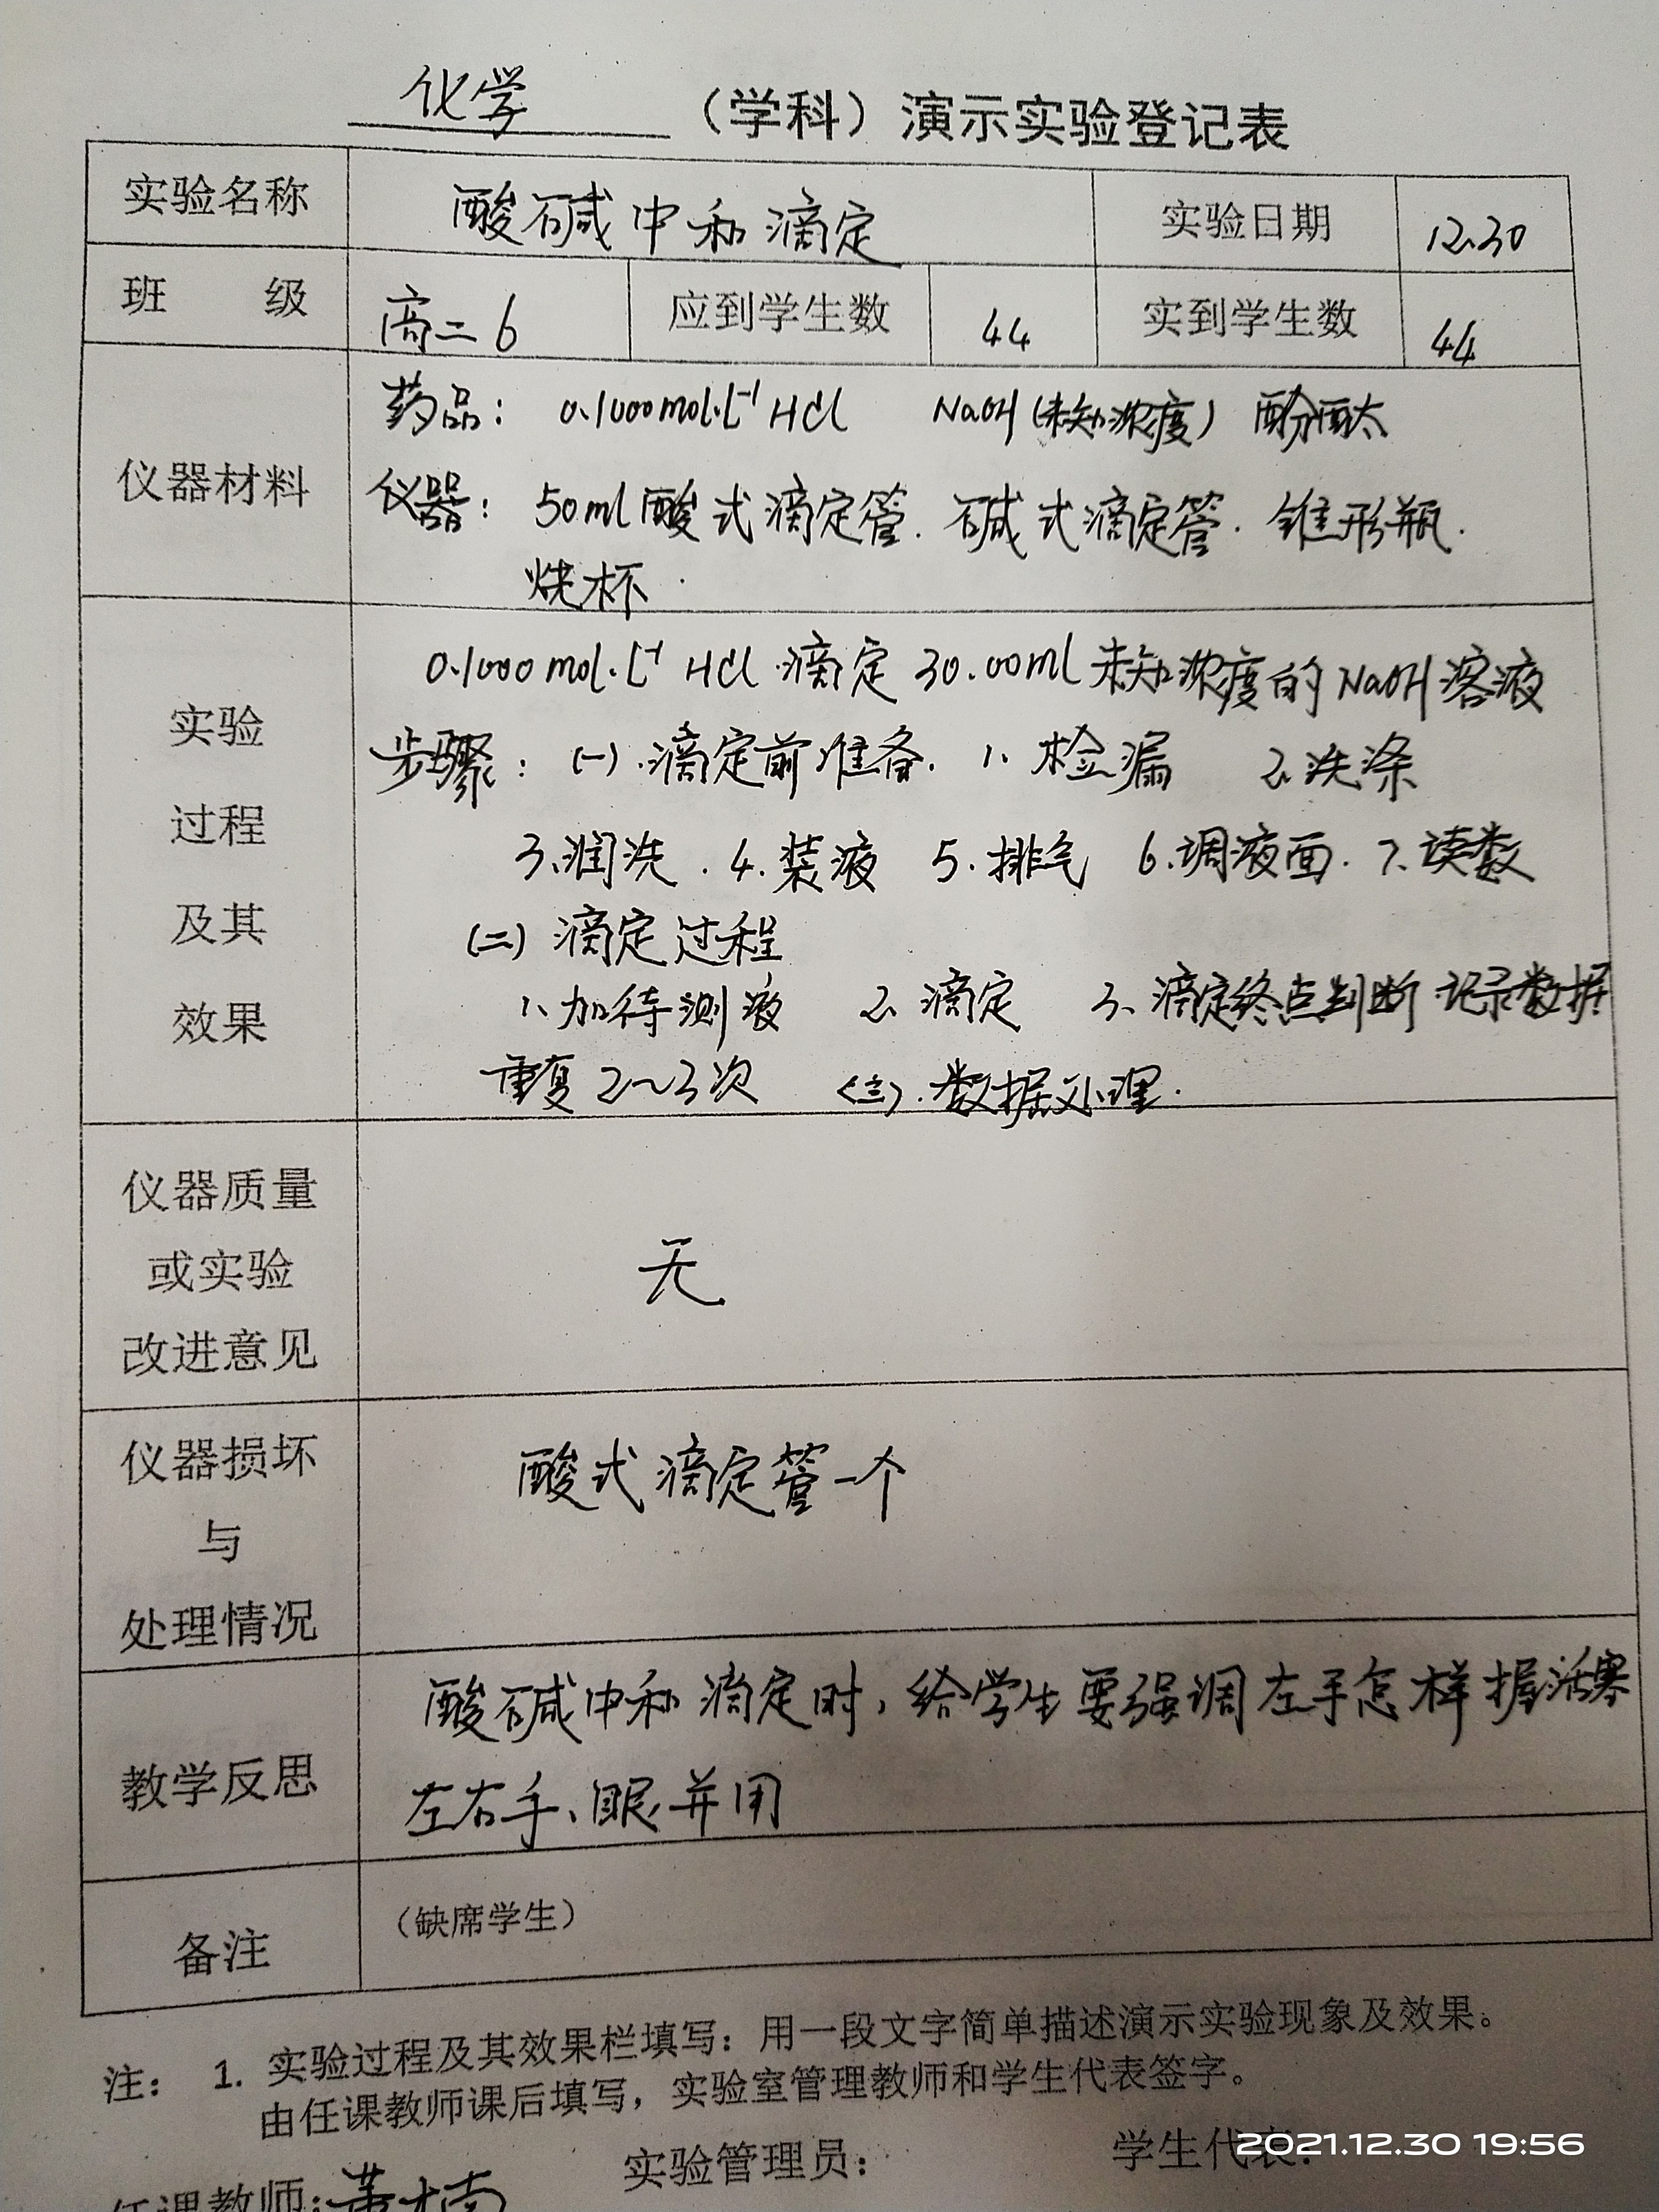 化学 （学科）演示实验登记表
实验名称 酸碱中和滴定 实验日期 12.30
班 级 高二6 应到学生数 44 实到学生数 44
仪器材料
药品： 0.1000mol·L⁻¹ HCl NaOH（未知浓度） 酚酞
仪器： 50ml酸式滴定管. 碱式滴定管. 锥形瓶.
烧杯.
实验
过程
及其
效果
0.1000 mol·L⁻¹ HCl 滴定 30.00ml 未知浓度的NaOH溶液
步骤：(一).滴定前准备. 1、检漏 2.洗涤
3.润洗. 4.装液 5.排气 6.调液面. 7.读数
(二) 滴定过程
1、加待测液 2. 滴定 3、滴定终点判断 记录数据
重复2～3次 (三).数据处理.
仪器质量
或实验
改进意见
无
仪器损坏
与
处理情况
酸式滴定管一个
教学反思
酸碱中和滴定时，给学生要强调左手怎样握活塞
左右手、眼并用
备注 （缺席学生）
注： 1. 实验过程及其效果栏填写：用一段文字简单描述演示实验现象及效果。
由任课教师课后填写，实验室管理教师和学生代表签字。
任课教师: 实验管理员： 学生代表：
2021.12.30 19:56